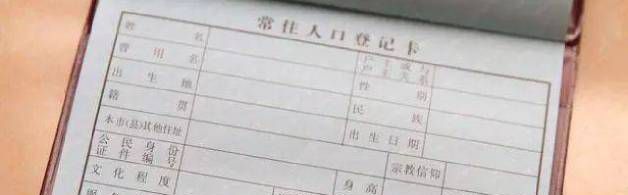 常住人口登记卡
姓名 户主或与户主关系
曾用名 性别
出生地 民族
籍贯 出生日期
本市(县)其他住址 宗教信仰
公民身份证件编号
文化程度 身高